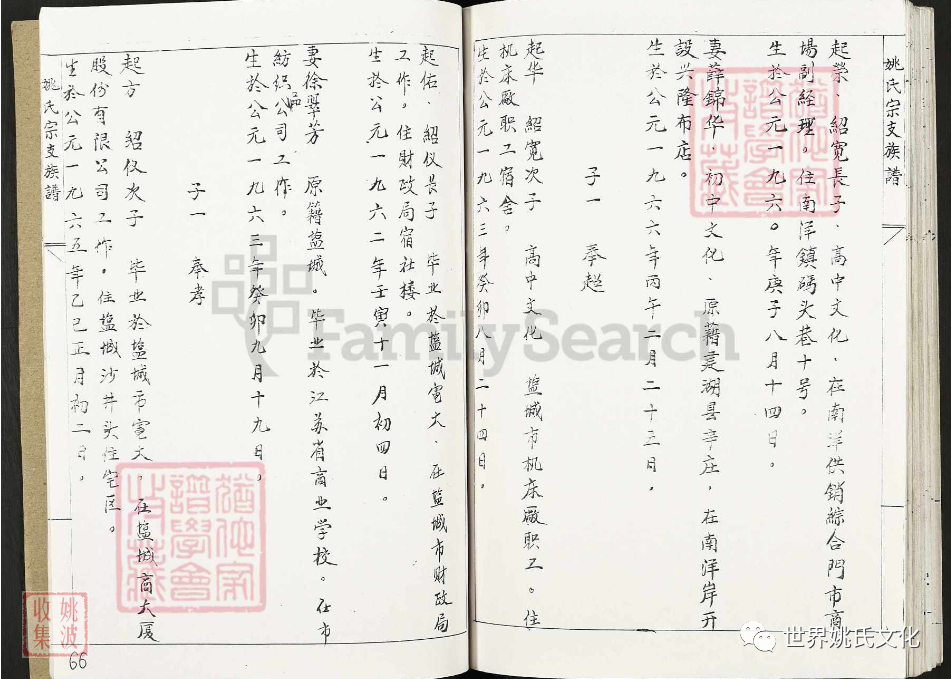 姚氏宗支族譜
起榮、紹寬長子、高中文化、在南洋供銷綜合門市商
場副經理。住南洋鎮碼头巷十号。
生於公元一九六〇年庚子八月十四日。
妻薛錦华、初中文化、原籍建湖县辛庄，在南洋岸开
設兴隆布店。
生於公元一九六六年丙午二月二十三日。
子一 奉起
起华 紹寬次子 高中文化 盐城市机床廠职工。住
机床廠职工宿舍。
生於公元一九六三年癸卯八月二十四日。
起佑、紹仪長子 毕业於盐城電大、在盐城市财政局
工作。住财政局宿社楼。
生於公元一九六二年壬寅十一月初四日。
妻徐翠芳 原籍盐城。毕业於江苏省商业学校。在市
紡织品公司工作。
生於公元一九六三年癸卯九月十九日。
子一 奉孝
起方 紹仪次子 毕业於盐城市電大，在盐城商大厦
股份有限公司工作。住盐城沙井头住宅区。
生於公元一九六五年乙巳正月初二日。
姚氏宗支族譜
66
姚波
收集
FamilySearch
世界姚氏文化